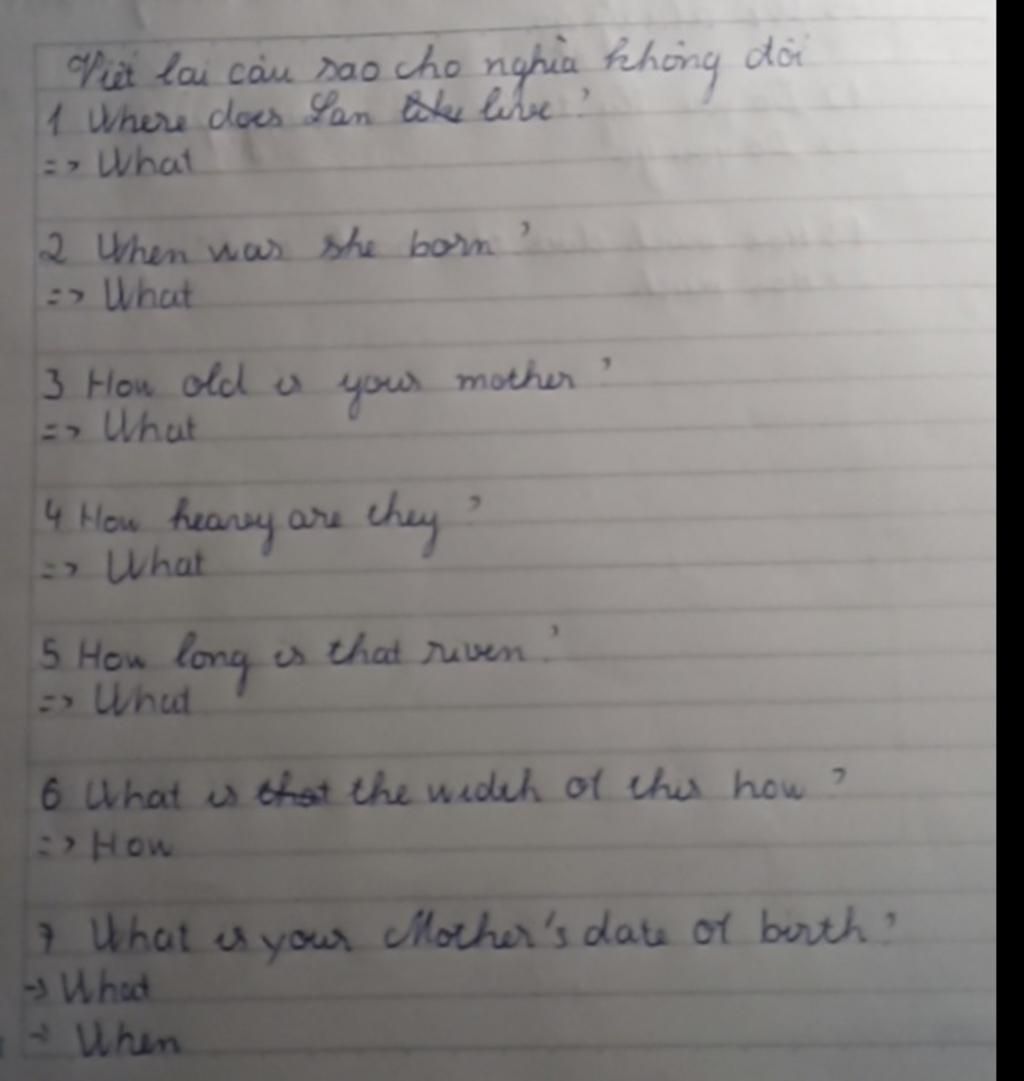 Viết lại câu sao cho nghĩa không đổi
1 Where does Lan like live ?
=> What
2 When was she born ?
=> What
3 How old is your mother ?
=> What
4 How heavy are they ?
=> What
5 How long is that river ?
=> What
6 What is that the width of this how ?
=> How
7 What is your Mother's date of birth ?
-> What
-> When